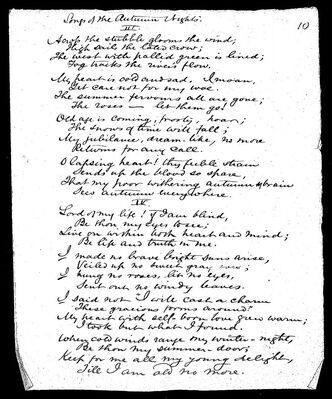 Songs of the Autumn Nights.
10
III
Across the stubble glooms the wind;
High sails the lated crow;
The west with pallid green is lined;
Fog tracks the river's flow.
My heart is cold and sad, I moan,
Yet care not for my woe.
The summer fervours all are gone;
The roses let them go!
Old age is coming, frosty, hoar;
The snows of time will fall;
My jubilance, dream-like, no more
Returns for any call.
O lapsing heart! thy feeble strain
Sends up the blood so spare,
That my poor withering autumn brain
Sees autumn everywhere.
IV
Lord of my life! if I am blind,
Be thou my eyes to see;
Live on within both heart and mind;
Be life and truth in me.
I made no brave bright suns arise,
Veiled up no sweet gray
I hung no roses, lit no eyes,
Sent out no windy leaves.
I said not "I will cast a charm
These gracious forms around;"
My heart with self-born love grew warm;
I took but what I found.
When cold winds range my winter-night,
Be thou my summer-door;
Keep for me all my young delight,
Till I am old no more.